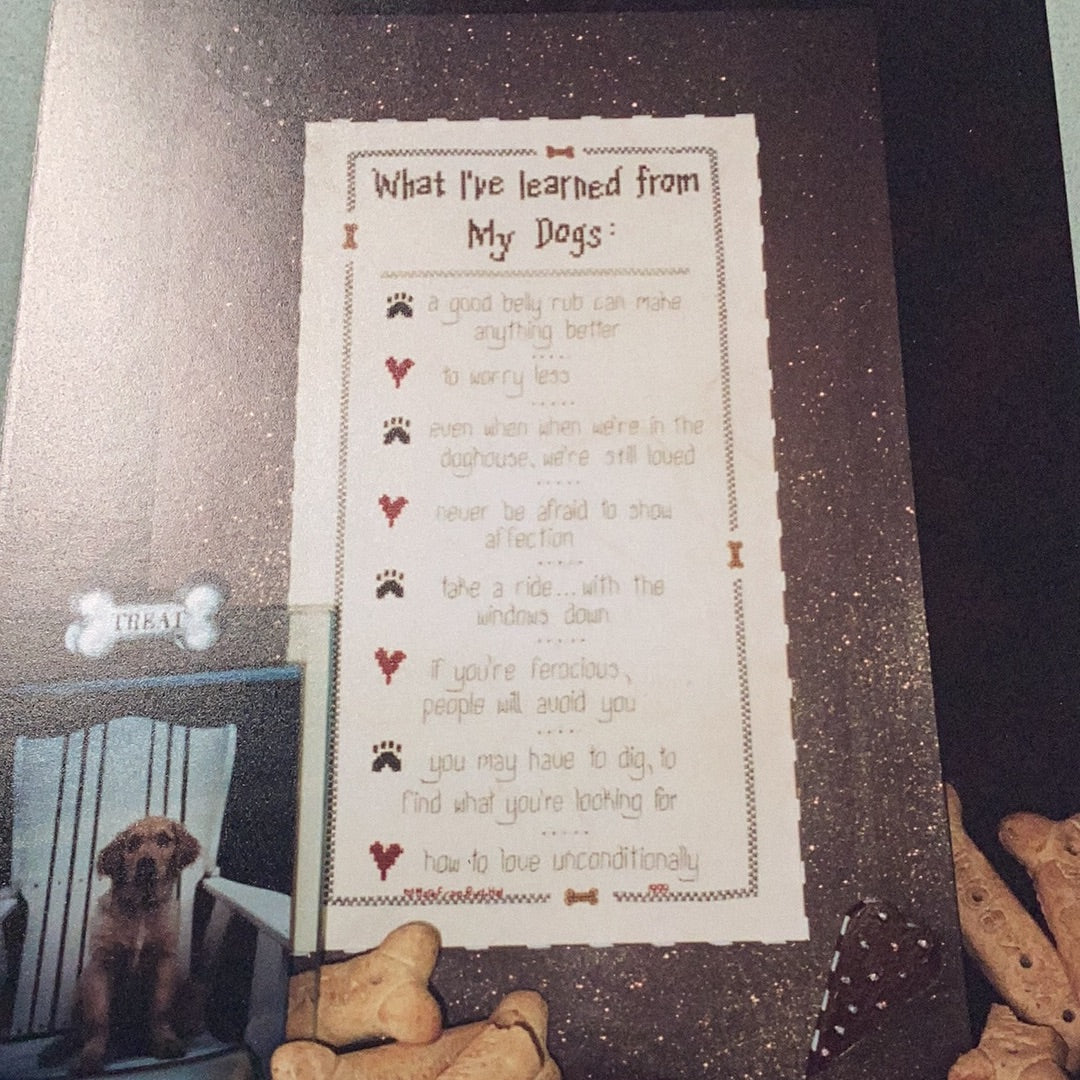 What I've learned from
My Dogs:
a good belly rub can make
anything better
to worry less
even when when we're in the
doghouse, we're still loved
never be afraid to show
affection
take a ride...with the
windows down
if you're ferocious,
people will avoid you
you may have to dig, to
find what you're looking for
how to love unconditionally
TREAT